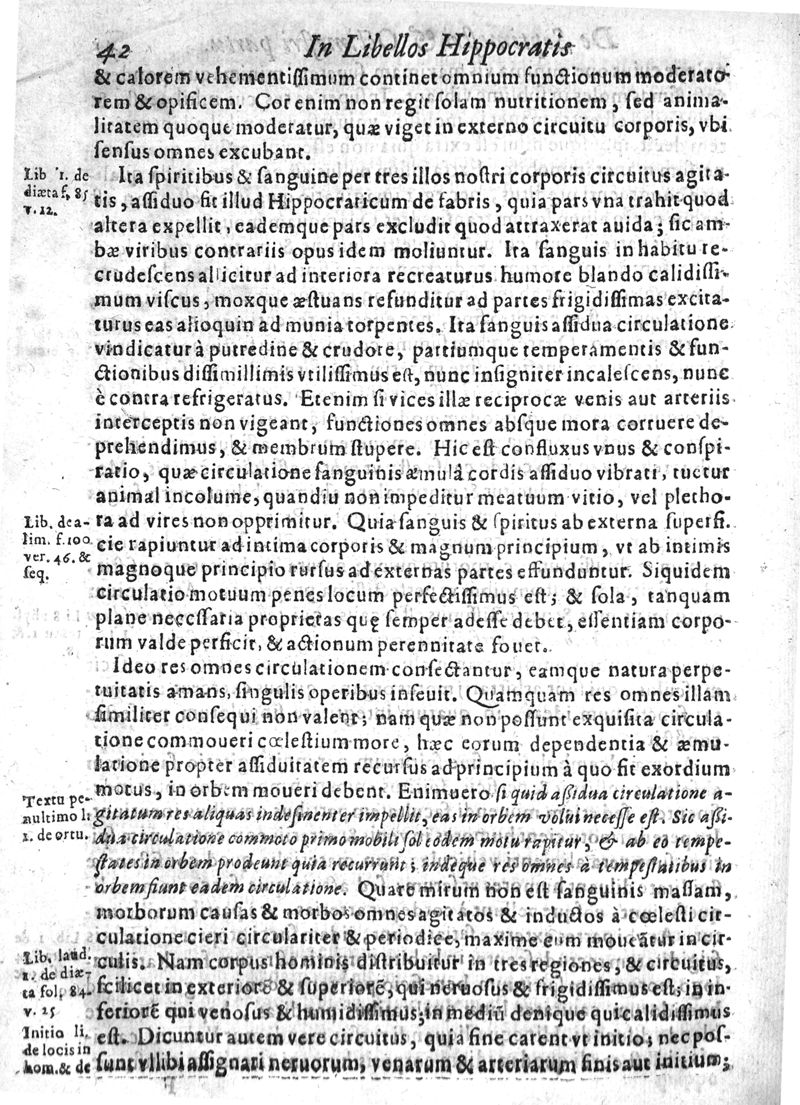 42 In Libellos Hippocratis
& calorem vehementissimum continet omnium functionum moderato-
rem & opificem. Cor enim non regit solam nutritionem, sed anima-
litatem quoque moderatur, quæ viget in externo circuitu corporis, vbi
sensus omnes excubant.
Lib. 1. de
diæta f. 85
v. 12.
Ita spiritibus & sanguine per tres illos nostri corporis circuitus agita-
tis, assiduo fit illud Hippocraticum de fabris, quia pars vna trahit quod
altera expellit, eademque pars excludit quod attraxerat auida; sic am-
bæ viribus contrariis opus idem moliuntur. Ita sanguis in habitu re-
crudescens allicitur ad interiora recreaturus humore blando calidissi-
mum viscus, moxque æstuans refunditur ad partes frigidissimas excita-
turus eas alioquin ad munia torpentes. Ita sanguis assidua circulatione
vindicatur à putredine & crudore, partiumque temperamentis & fun-
ctionibus dissimillimis vtilissimus est, nunc insigniter incalescens, nunc
è contra refrigeratus. Etenim si vices illæ reciprocæ venis aut arteriis
interceptis non vigeant, functiones omnes absque mora corruere de-
prehendimus, & membrum stupere. Hic est confluxus vnus & conspi-
ratio, quæ circulatione sanguinis æmulâ cordis assiduo vibrati, tuetur
animal incolume, quandiu non impeditur meatuum vitio, vel pletho-
Lib. de a-
lim. f. 100
ver. 46. &
seq.
ra ad vires non opprimitur. Quia sanguis & spiritus ab externa superfi-
cie rapiuntur ad intima corporis & magnum principium, vt ab intimis
magnoque principio rursus ad externas partes effunduntur. Siquidem
circulatio motuum penes locum perfectissimus est; & sola, tanquam
plane necessaria proprietas quę semper adesse debet, essentiam corpo-
rum valde perficit, & actionum perennitate fouet.
Ideo res omnes circulationem consectantur, eamque natura perpe-
tuitatis amans, singulis operibus inseuit. Quamquam res omnes illam
similiter consequi non valent; nam quæ non possunt exquisita circula-
tione commoueri cœlestium more, hæc eorum dependentia & æmu-
latione propter assiduitatem recursus ad principium à quo fit exordium
motus, in orbem moueri debent. Enimuero si quid assidua circulatione a-
Textu pe-
nultimo li
2. de ortu.
gitatum res aliquas indesinenter impellit, eas in orbem volui necesse est. Sic assi-
dua circulatione commoto primo mobili sol eodem motu rapitur, & ab eo tempe-
states in orbem prodeunt quia recurrunt; indeque res omnes à tempestatibus in
orbem fiunt eadem circulatione. Quare mirum non est sanguinis massam,
morborum causas & morbos omnes agitatos & inductos à cœlesti cir-
culatione cieri circulariter & periodice, maxime cum moueãtur in cir-
Lib. laud.
1. de diæ-
ta fol. 84.
v. 25
culis. Nam corpus hominis distribuitur in tres regiones, & circuitus,
scilicet in exteriorẽ & superiorẽ, qui neruosus & frigidissimus est; in in-
feriorẽ qui venosus & humidissimus; in mediũ denique qui calidissimus
Initio li.
de locis in
hom. & de
est. Dicuntur autem vere circuitus, quia fine carent vt initio; nec pos-
sunt vllibi assignari neruorum, venarum & arteriarum finis aut initium;